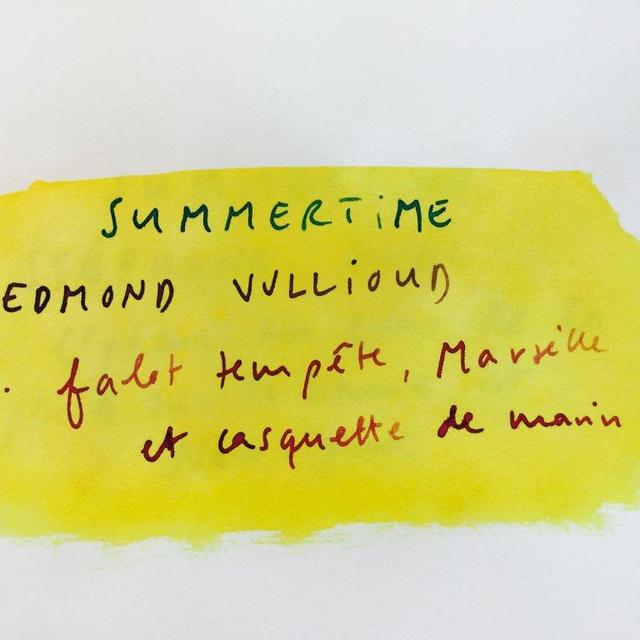 SUMMERTIME
EDMOND VULLIOUD
. falot tempête, Marseille
et casquette de marin